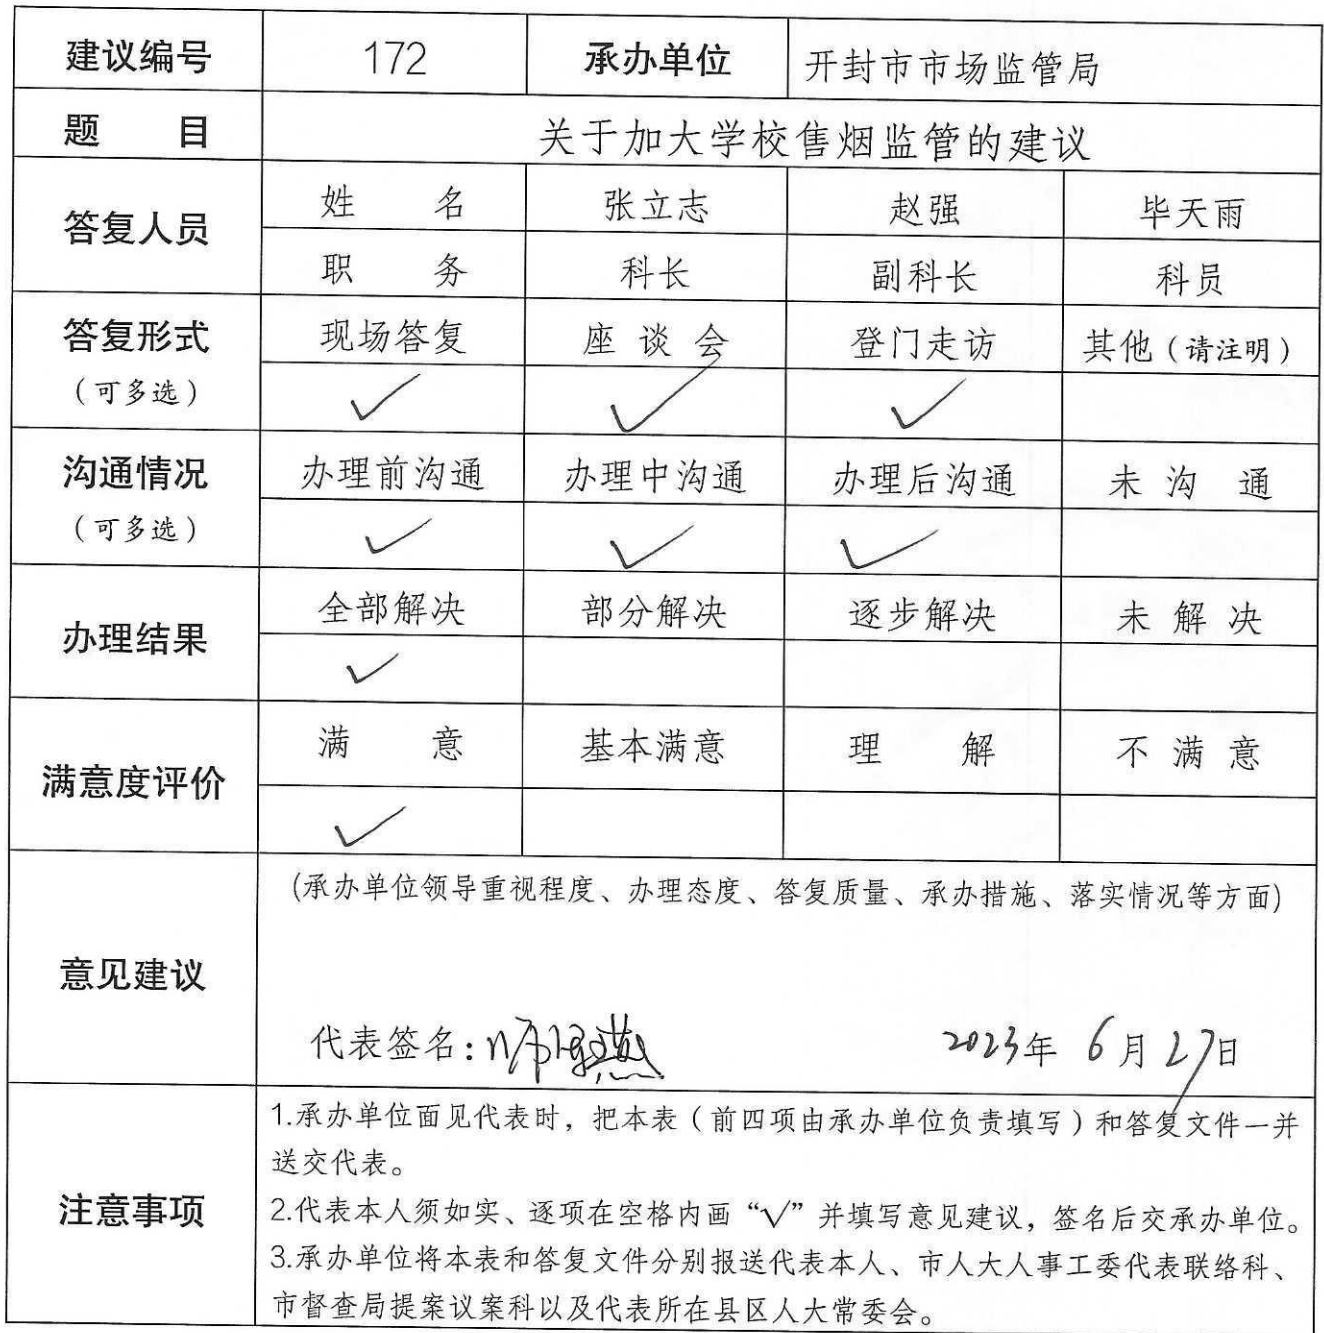 建议编号 172 承办单位 开封市市场监管局
题 目 关于加大学校售烟监管的建议
答复人员 姓 名 张立志 赵强 毕天雨
职 务 科长 副科长 科员
答复形式 现场答复 座谈会 登门走访 其他（请注明）
（可多选） ✓ ✓ ✓
沟通情况 办理前沟通 办理中沟通 办理后沟通 未沟通
（可多选） ✓ ✓ ✓
办理结果 全部解决 部分解决 逐步解决 未解决
✓
满意度评价 满 意 基本满意 理 解 不满意
✓
（承办单位领导重视程度、办理态度、答复质量、承办措施、落实情况等方面）
意见建议
代表签名： 2023年 6月27日
注意事项
1.承办单位面见代表时，把本表（前四项由承办单位负责填写）和答复文件一并
送交代表。
2.代表本人须如实、逐项在空格内画“√”并填写意见建议，签名后交承办单位。
3.承办单位将本表和答复文件分别报送代表本人、市人大人事工委代表联络科、
市督查局提案议案科以及代表所在县区人大常委会。